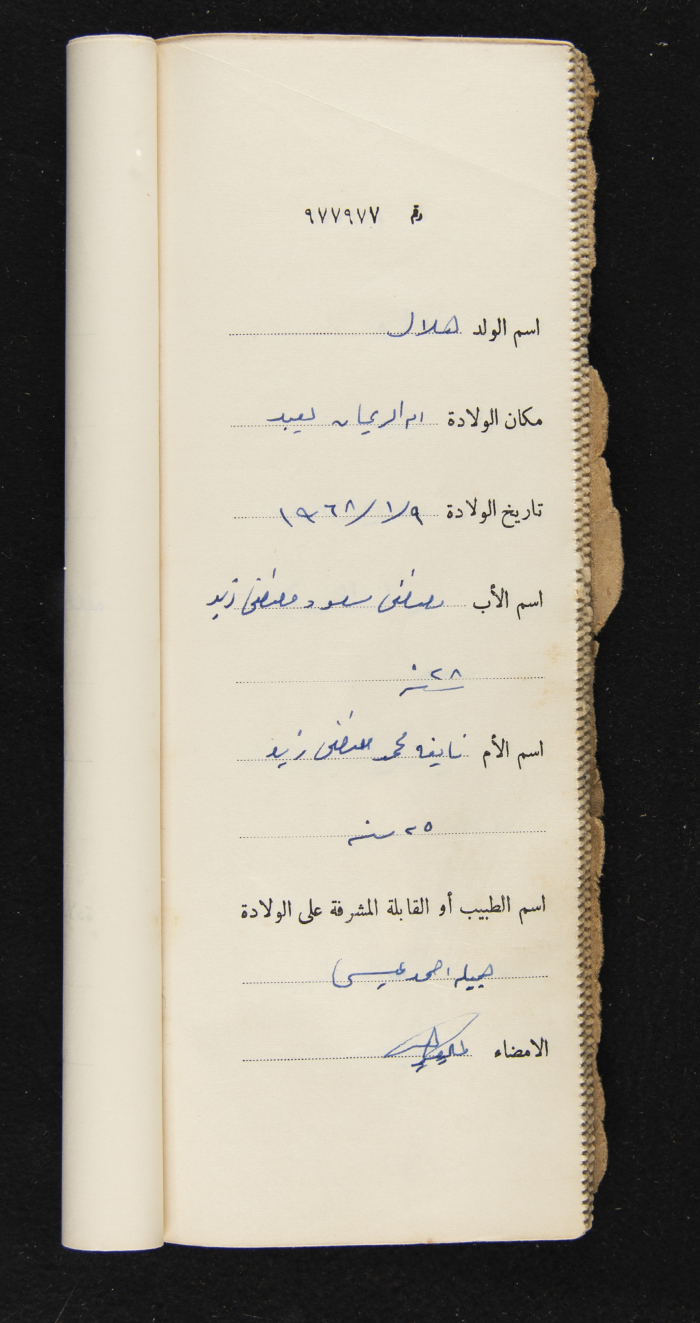 رقم ٩٧٧٩٧٧
اسم الولد هلال
مكان الولادة ام الريحان يعبد
تاريخ الولادة ١٩٦٨/١/٩
اسم الأب مصطفى سعود مصطفى زيد
٢٨ سنة
اسم الأم نايفه محمد مصطفى زيد
٢٥ سنه
اسم الطبيب أو القابلة المشرفة على الولادة
جميله احمد عيسى
الامضاء